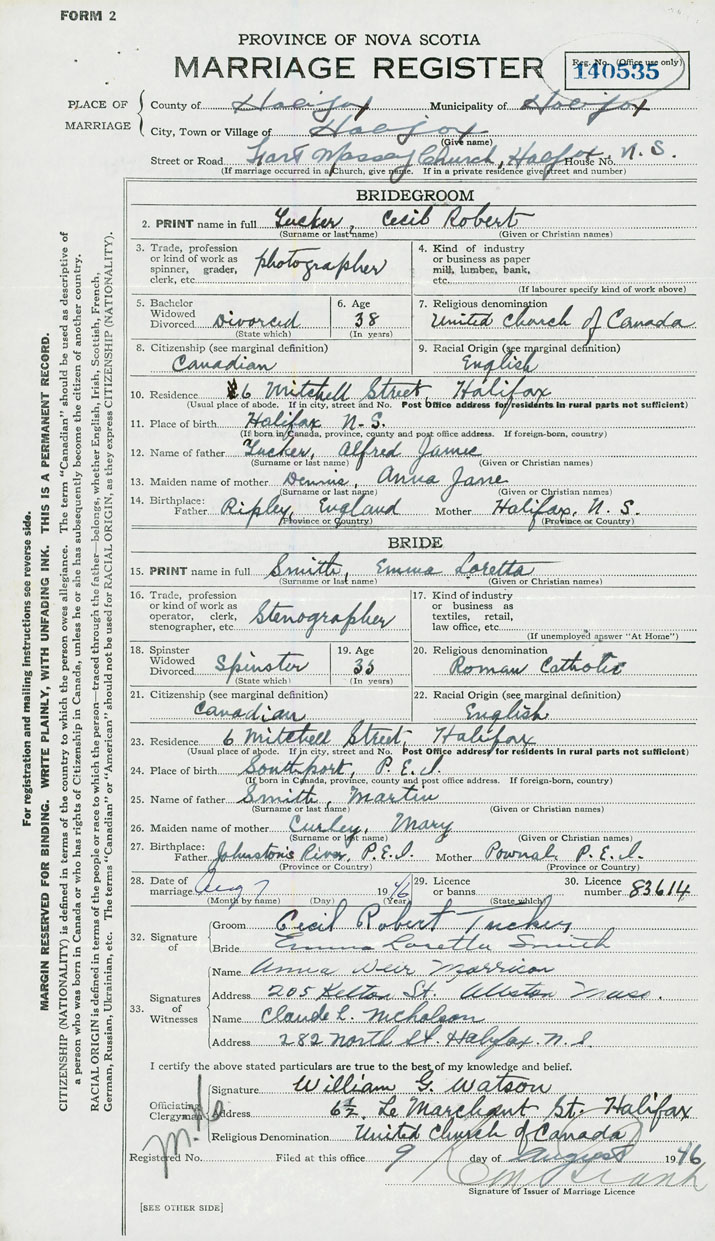 FORM 2
PROVINCE OF NOVA SCOTIA
MARRIAGE REGISTER
Reg. No. (Office use only)
140535
PLACE OF MARRIAGE
County of Halifax Municipality of Halifax
City, Town or Village of Halifax
(Give name)
Street or Road Fort Massey Church, Halifax House No. N. S.
(If marriage occurred in a Church, give name. If in a private residence give street and number)
BRIDEGROOM
2. PRINT name in full Tucker, Cecil Robert
(Surname or last name) (Given or Christian names)
3. Trade, profession or kind of work as spinner, grader, clerk, etc. photographer
4. Kind of industry or business as paper mill, lumber, bank, etc.
(If labourer specify kind of work above)
5. Bachelor Widowed Divorced Divorced
(State which)
6. Age 38
(In years)
7. Religious denomination
United Church of Canada
8. Citizenship (see marginal definition)
Canadian
9. Racial Origin (see marginal definition)
English
10. Residence 6 Mitchell Street, Halifax
(Usual place of abode. If in city, street and No. Post Office address for residents in rural parts not sufficient)
11. Place of birth Halifax N. S.
(If born in Canada, province, county and post office address. If foreign-born, country)
12. Name of father Tucker, Alfred James
(Surname or last name) (Given or Christian names)
13. Maiden name of mother Dennis, Anna Jane
(Surname or last name) (Given or Christian names)
14. Birthplace: Father Ripley, England Mother Halifax, N. S.
(Province or Country) (Province or Country)
BRIDE
15. PRINT name in full Smith, Emma Loretta
(Surname or last name) (Given or Christian names)
16. Trade, profession or kind of work as operator, clerk, stenographer, etc. Stenographer
17. Kind of industry or business as textiles, retail, law office, etc.
(If unemployed answer "At Home")
18. Spinster Widowed Divorced Spinster
(State which)
19. Age 35
(In years)
20. Religious denomination
Roman Catholic
21. Citizenship (see marginal definition)
Canadian
22. Racial Origin (see marginal definition)
English
23. Residence 6 Mitchell Street, Halifax
(Usual place of abode. If in city, street and No. Post Office address for residents in rural parts not sufficient)
24. Place of birth Southport, P. E. I.
(If born in Canada, province, county and post office address. If foreign-born, country)
25. Name of father Smith, Martin
(Surname or last name) (Given or Christian names)
26. Maiden name of mother Curley, Mary
(Surname or last name) (Given or Christian names)
27. Birthplace: Father Johnston's River, P.E.I. Mother Pownal, P.E.I.
(Province or Country) (Province or Country)
28. Date of marriage Aug 7 1946
(Month by name) (Day) (Year)
29. Licence or banns
(State which)
30. Licence number 83614
32. Signature of
Groom Cecil Robert Tucker
Bride Emma Loretta Smith
33. Signatures of Witnesses
Name Anna Weir Morrison
Address 205 Kelton St. Allston Mass.
Name Claude L. Nicholson
Address 282 North St. Halifax. N. S.
I certify the above stated particulars are true to the best of my knowledge and belief.
Officiating Clergyman
Signature William G. Watson
Address 6½ Le Marchant St. Halifax
Religious Denomination United Church of Canada
Registered No. Filed at this office 9 day of August 1946
Signature of Issuer of Marriage Licence
[SEE OTHER SIDE]
For registration and mailing instructions see reverse side.
MARGIN RESERVED FOR BINDING. WRITE PLAINLY, WITH UNFADING INK. THIS IS A PERMANENT RECORD.
CITIZENSHIP (NATIONALITY) is defined in terms of the country to which the person owes allegiance. The term "Canadian" should be used as descriptive of
a person who was born in Canada or who has rights of Citizenship in Canada, unless he or she has subsequently become the citizen of another country.
RACIAL ORIGIN is defined in terms of the people or race to which the person—traced through the father—belongs, whether English, Irish, Scottish, French,
German, Russian, Ukrainian, etc. The terms "Canadian" or "American" should not be used for RACIAL ORIGIN, as they express CITIZENSHIP (NATIONALITY).